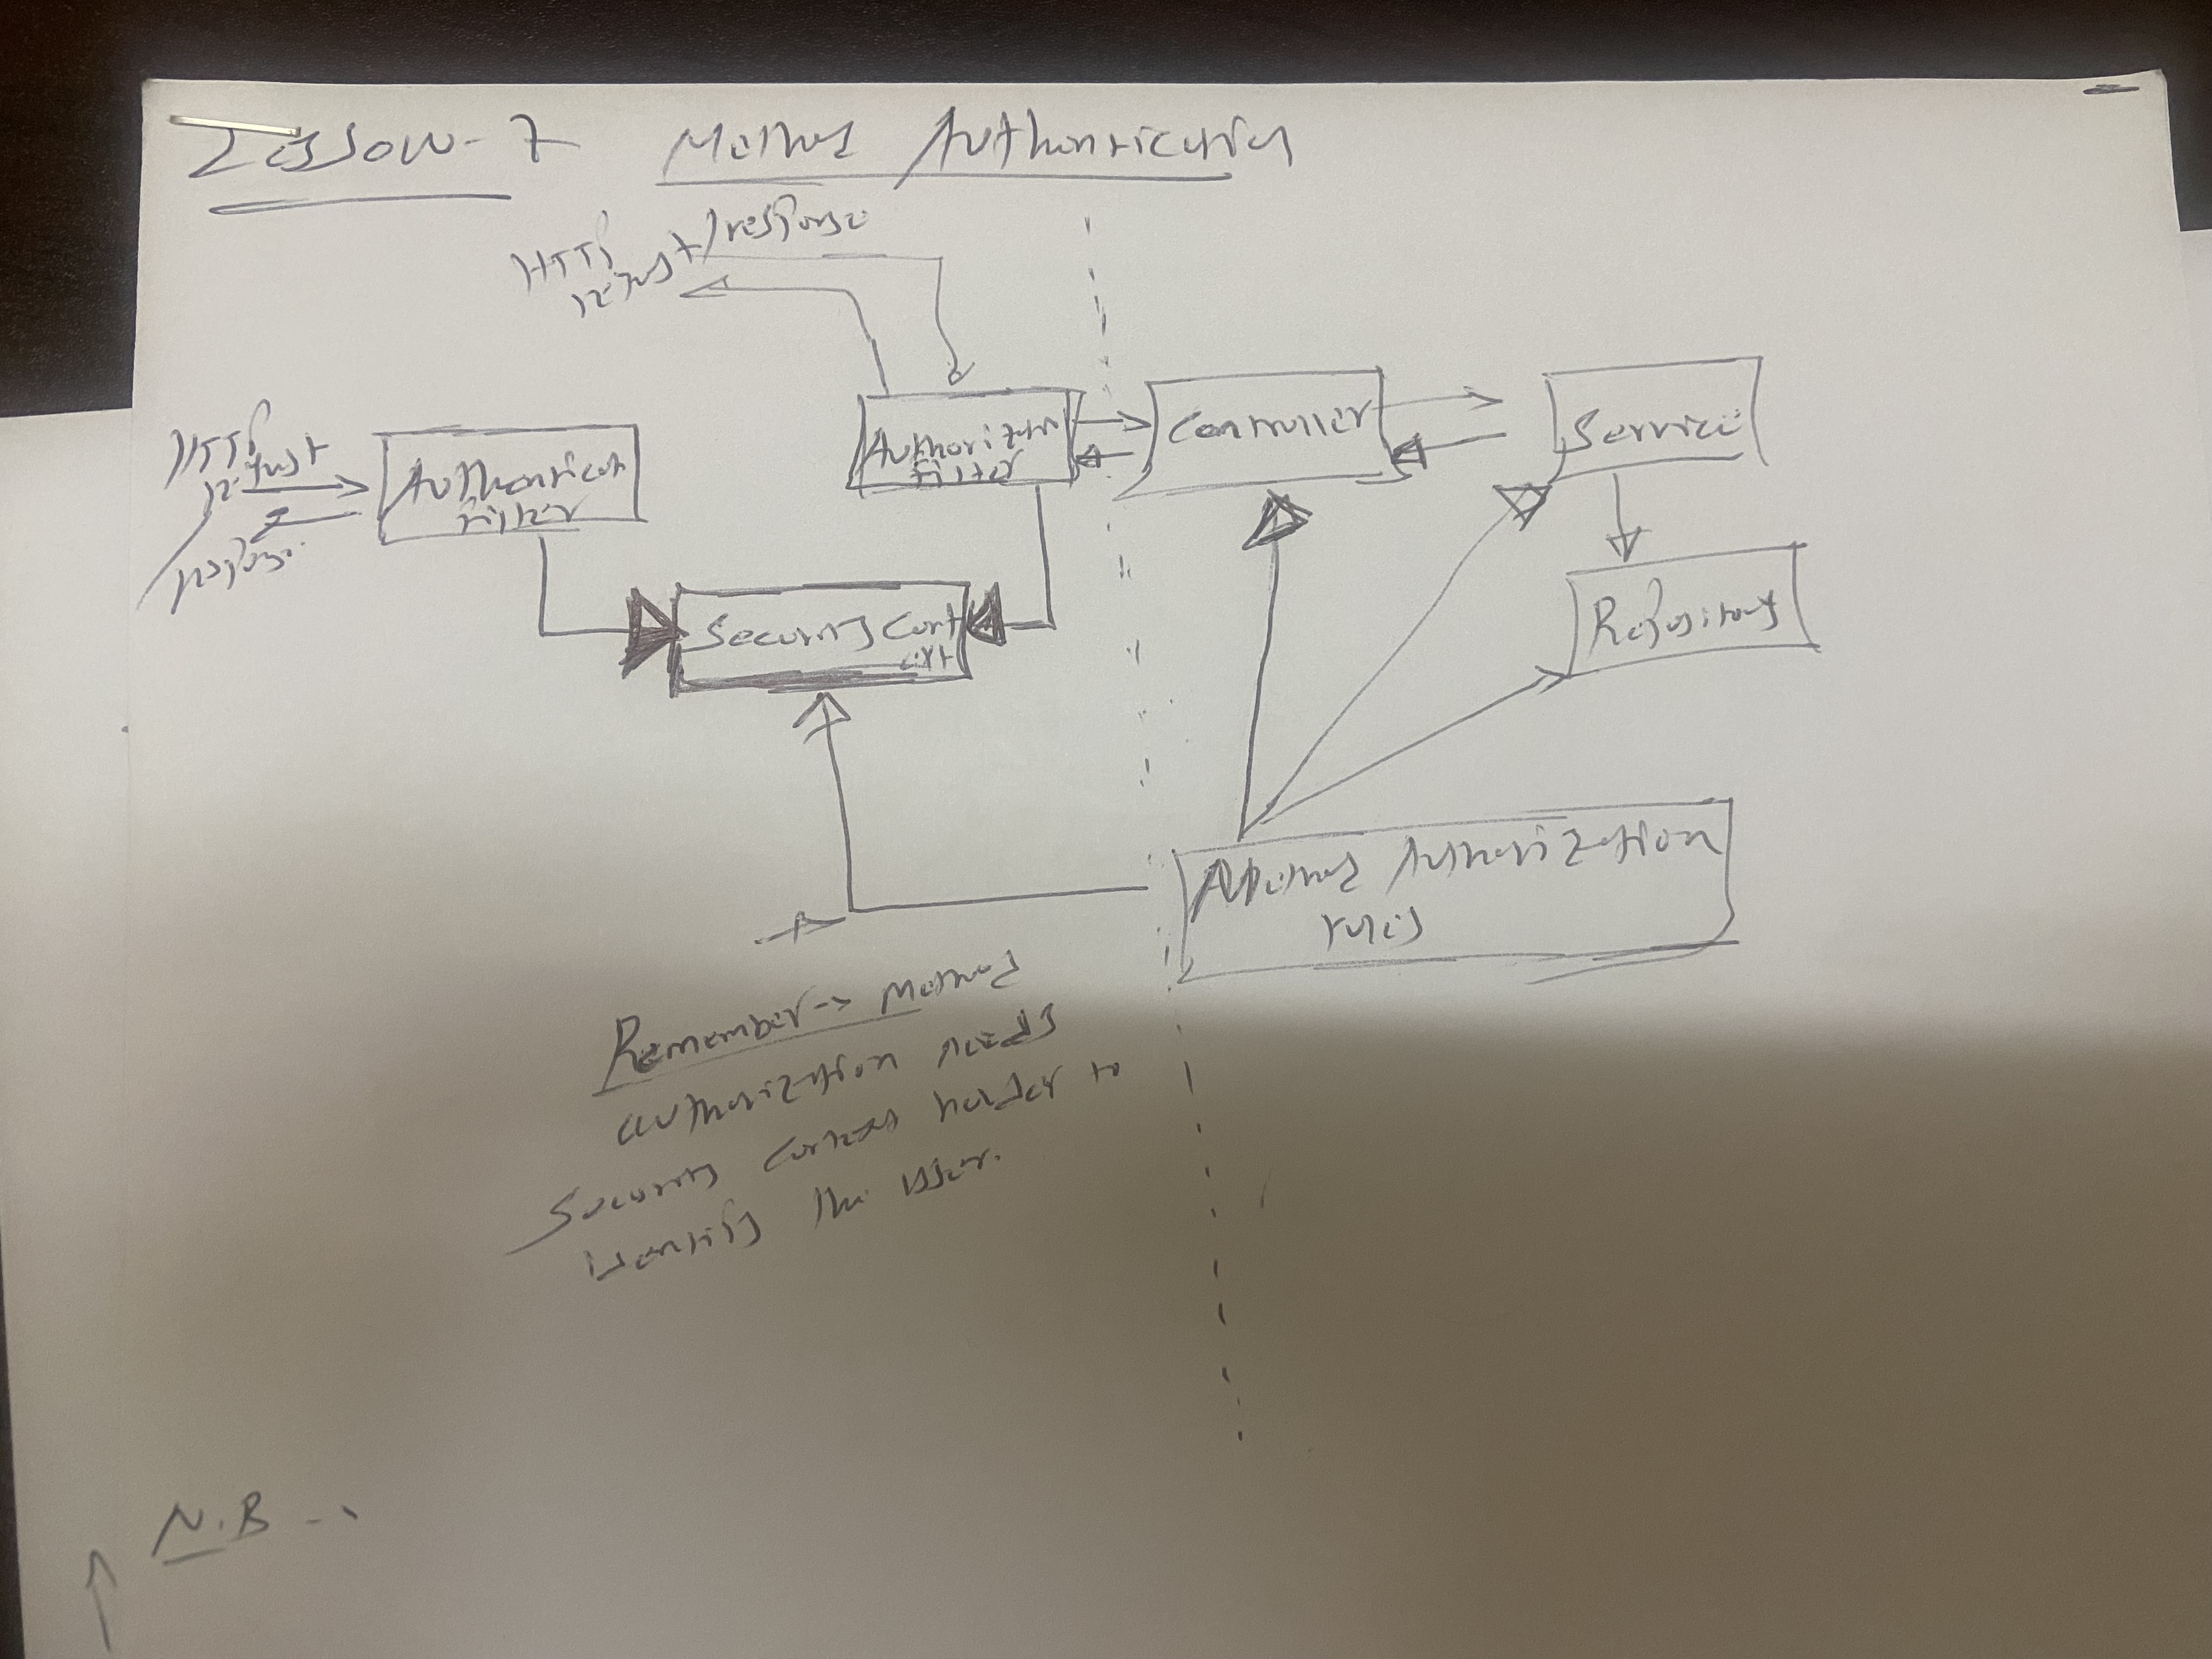 Lesson-7 Method Authentication
HTTP
request/response
HTTP
request
/
response
Authenticat
filter
Authorizatn
filter
Controller
Service
Security Cont
ext
Repository
Method Authorization
rules
Remember -> Method
authorization needs
Security Context holder to
identify the user.
N.B --